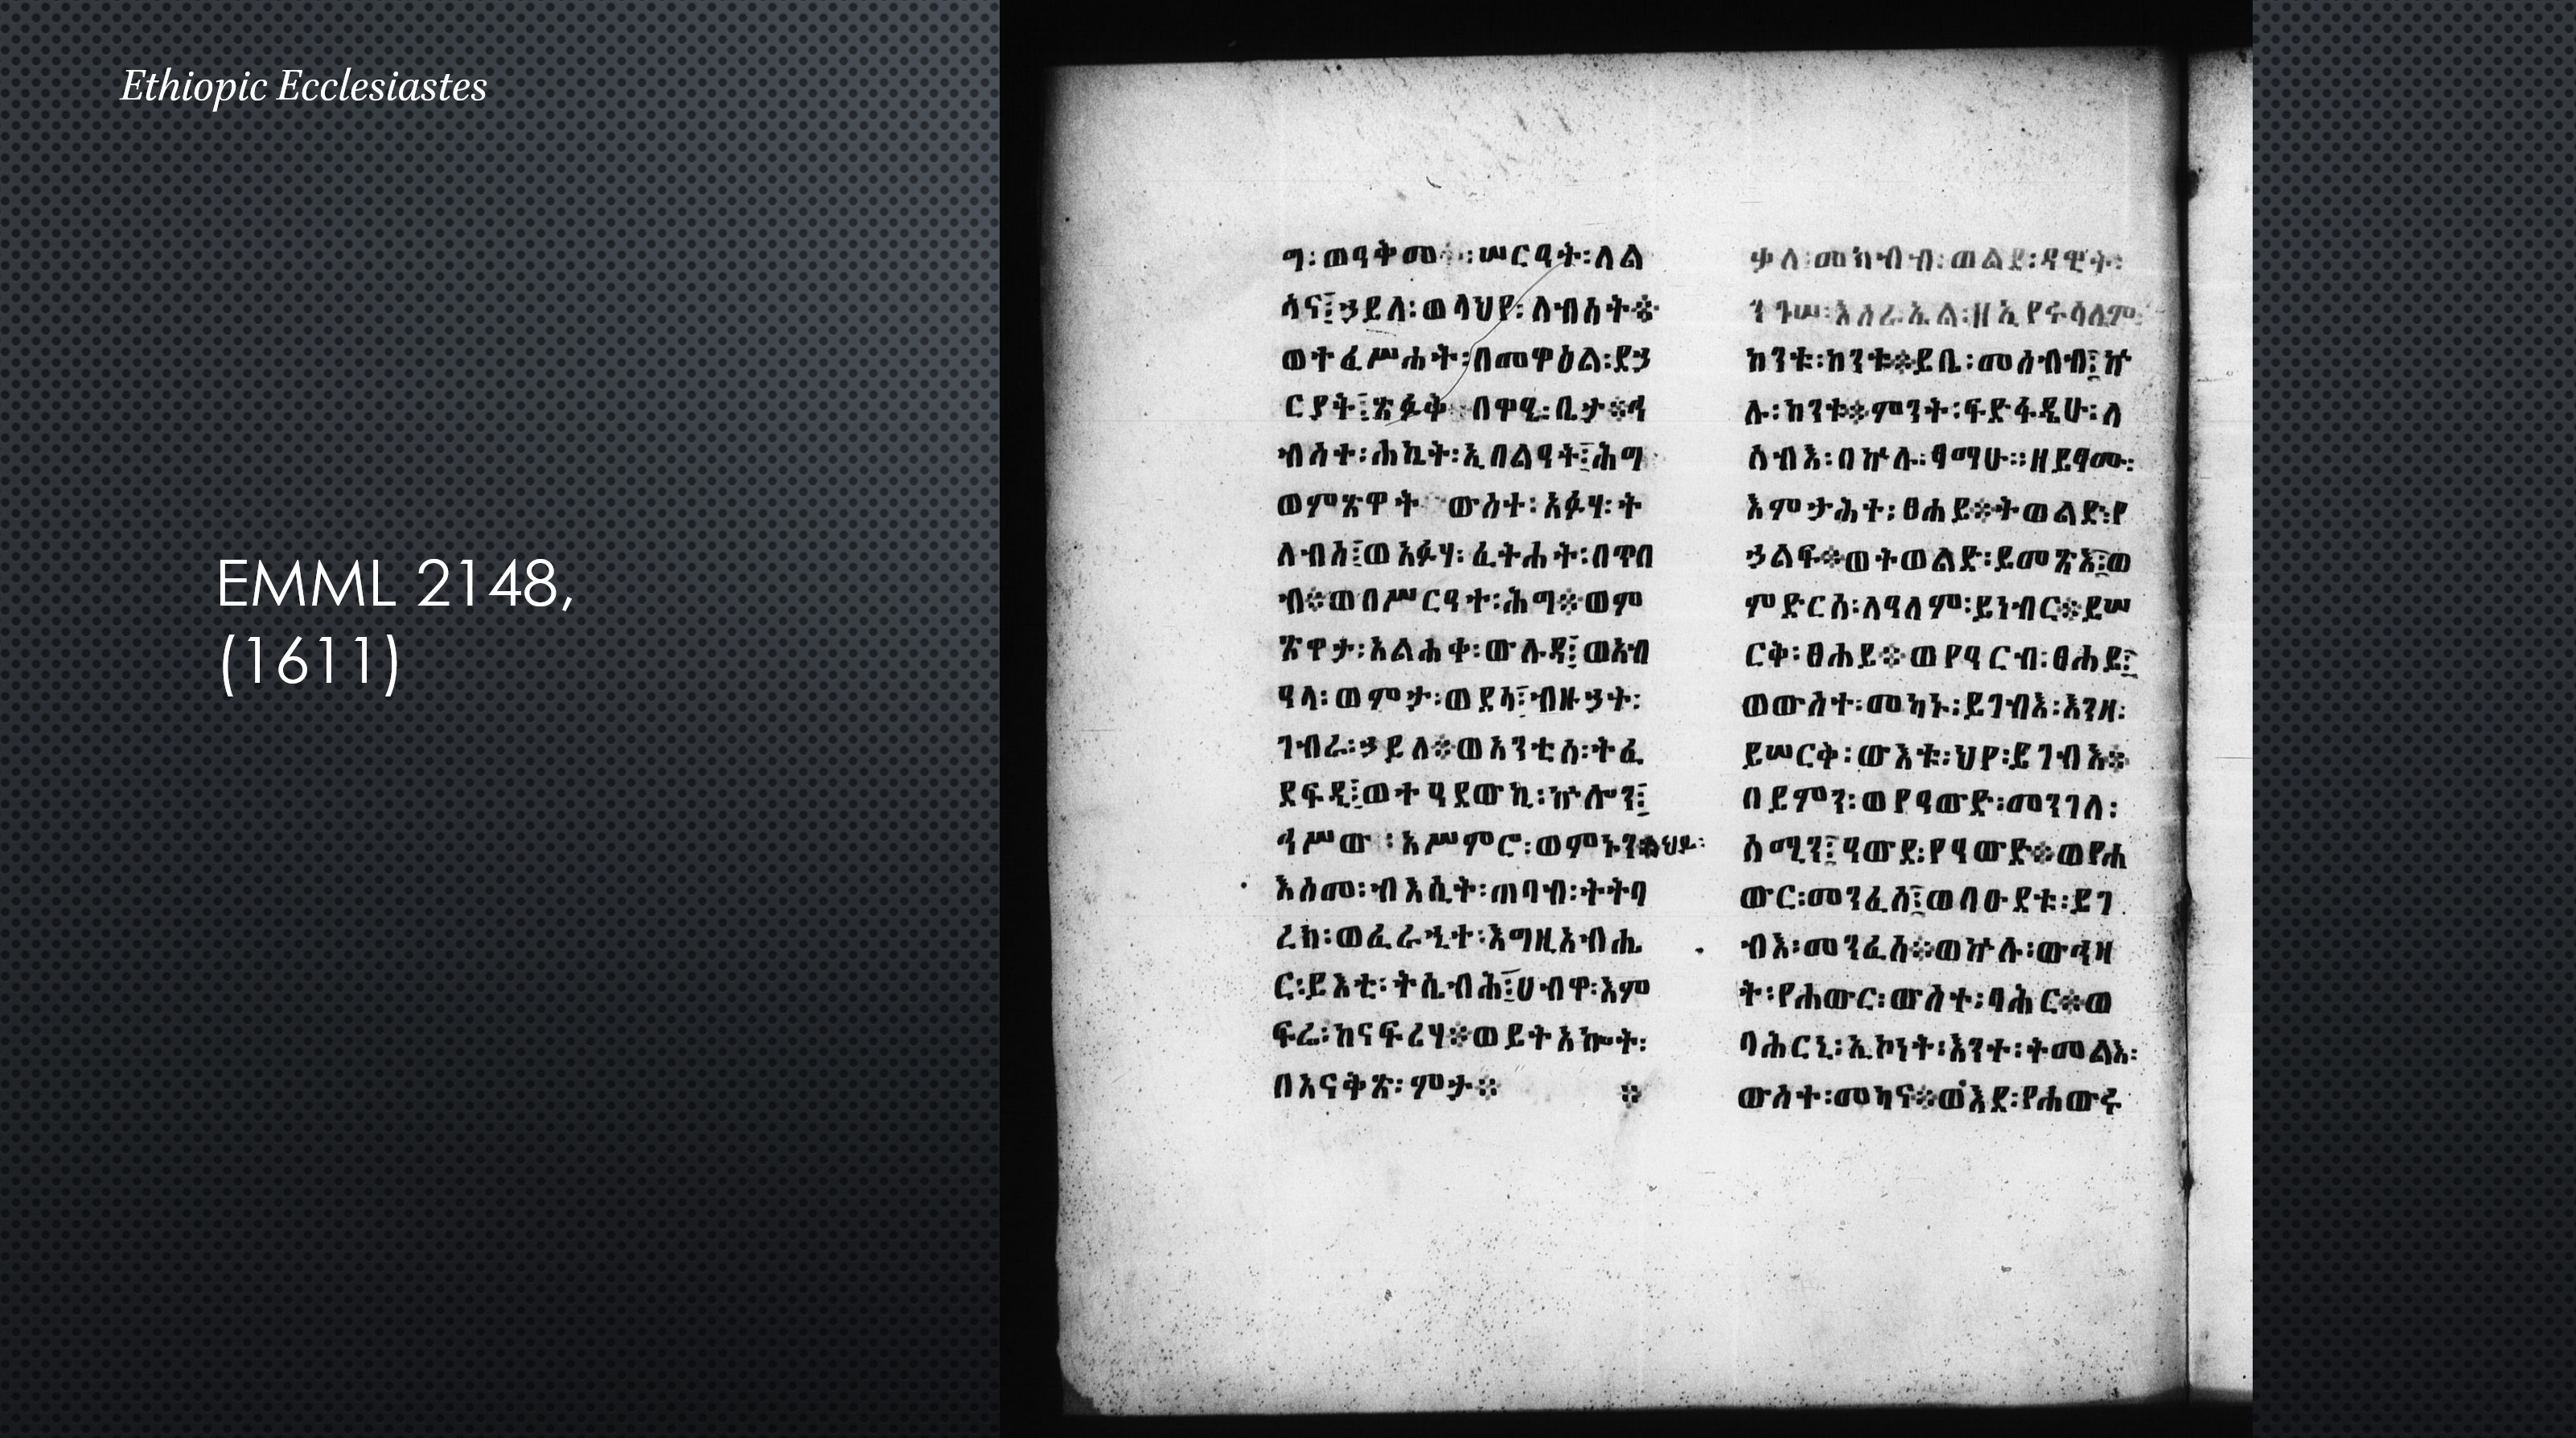 Ethiopic Ecclesiastes
EMML 2148,
(1611)
ግ፡ወዓቅመ፡ሠርዓት፡ለል
ሳና፤ኃይለ፡ወላህየ፡ለብሰት፨
ወተፈሥሐት፡በመዋዕል፡ደኃ
ርያት፤አፉቅ በዋዒ፡ቤታ፨ሳ
ብሰተ፡ሐኪት፡ኢበልዓት፤ሕግ
ወምጽዋት ውስተ፡አፉሃ፡ት
ለብስ፤ወአፉሃ፡ፈትሐት፡በጥበ
ብ፨ወበሥርዓተ፡ሕግ፨ወም
ጽዋታ፡አልሐቀ፡ውሉዳ፤ወአብ
ዓላ፡ወምታ፡ወደሳ፤ብዙኃት፡
ገብራ፡ኃይለ፨ወአንቲሰ፡ትፈ
ደፍዲ፤ወተዓደውኪ፡ኵሎን፤
ሳሥው፡አሥምሮ፡ወምኑን
እስመ፡ብእሲት፡ጠባብ፡ትትባ
ረክ፡ወፈራኂተ፡እግዚአብሔ
ር፡ይእቲ፡ትሴብሕ፤ሀብዋ፡እም
ፍሬ፡ከናፍሪሃ፨ወይትአኰት፡
በአናቅጽ፡ምታ፨ ፨
ቃለ፡መክብብ፡ወልደ፡ዳዊት፡
ንጉሠ፡እስራኤል፡ዘኢየሩሳሌም፡
ከንቱ፡ከንቱ፨ይቤ፡መስብብ፤ኵ
ሉ፡ከንቱ፨ምንት፡ፍድፋዲሁ፡ለ
ሰብእ፡በኵሉ፡ፃማሁ፡ዘይፃሙ፡
እምታሕተ፡ፀሐይ፨ትወልድ፡የ
ኃልፍ፨ወትወልድ፡ይመጽእ፤ወ
ምድርሰ፡ለዓለም፡ይነብር፨ይሠ
ርቅ፡ፀሐይ፨ወየዓርብ፡ፀሐይ፤
ወውስተ፡መካኑ፡ይገብእ፡እንዘ፡
ይሠርቅ፡ውእቱ፡ህየ፡ይገብእ፨
በይምን፡ወየዓውድ፡መንገለ፡
ሰሜን፤ዓውደ፡የዓውድ፨ወየሐ
ውር፡መንፈስ፤ወበዑደቱ፡ይገ
ብእ፡መንፈስ፨ወኵሉ፡ውሳዘ
ት፡የሐውር፡ውስተ፡ባሕር፨ወ
ባሕርኒ፡ኢኮነት፡እንተ፡ትመልእ፡
ውስተ፡መካና፨ወእደ፡የሐውሩ